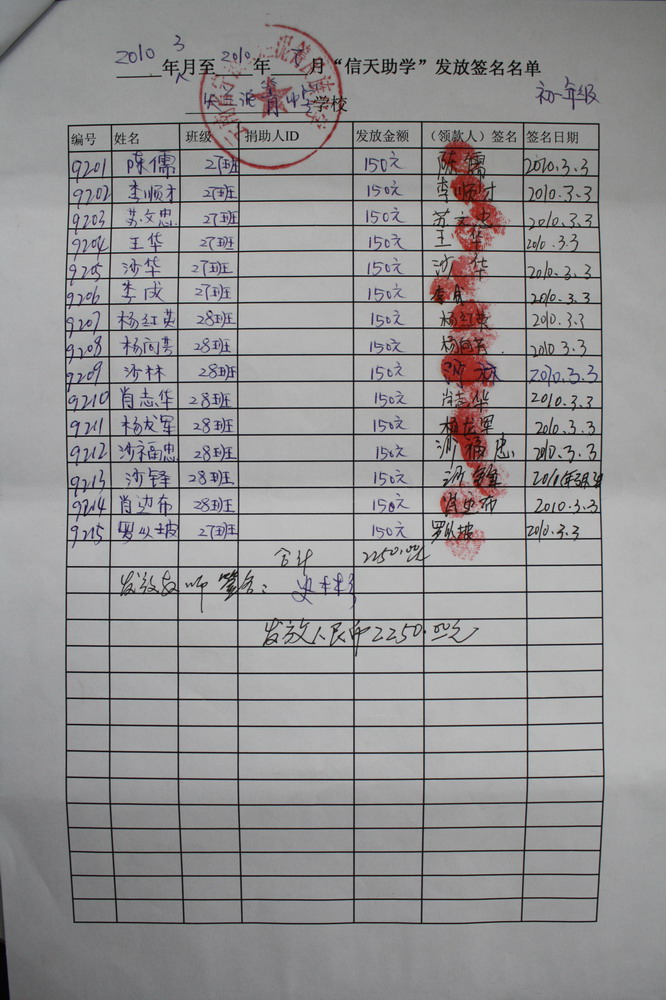 2010年3月至2010年 月“信天助学”发放签名名单
学校
初一年级
编号 姓名 班级 捐助人ID 发放金额 （领款人）签名 签名日期
9201 陈儒 27班 150元 陈儒 2010.3.3
9202 李顺才 27班 150元 李顺才 2010.3.3
9203 苏文忠 27班 150元 苏文忠 2010.3.3
9204 王华 27班 150元 王华 2010.3.3
9205 沙华 27班 150元 沙华 2010.3.3
9206 李成 27班 150元 李成 2010.3.3
9207 杨红英 28班 150元 杨红英 2010.3.3
9208 杨向英 28班 150元 杨向英 2010.3.3
9209 沙林 28班 150元 沙林 2010.3.3
9210 肖志华 28班 150元 肖志华 2010.3.3
9211 杨龙军 28班 150元 杨龙军 2010.3.3
9212 沙福忠 28班 150元 沙福忠 2010.3.3
9213 沙铎 28班 150元 2010年3月3
9214 肖边布 28班 150元 肖边布 2010.3.3
9215 罗以坡 27班 150元 罗以坡 2010.3.3
合计 2250.00元
发放教师签名：
发放人民币2250.00元